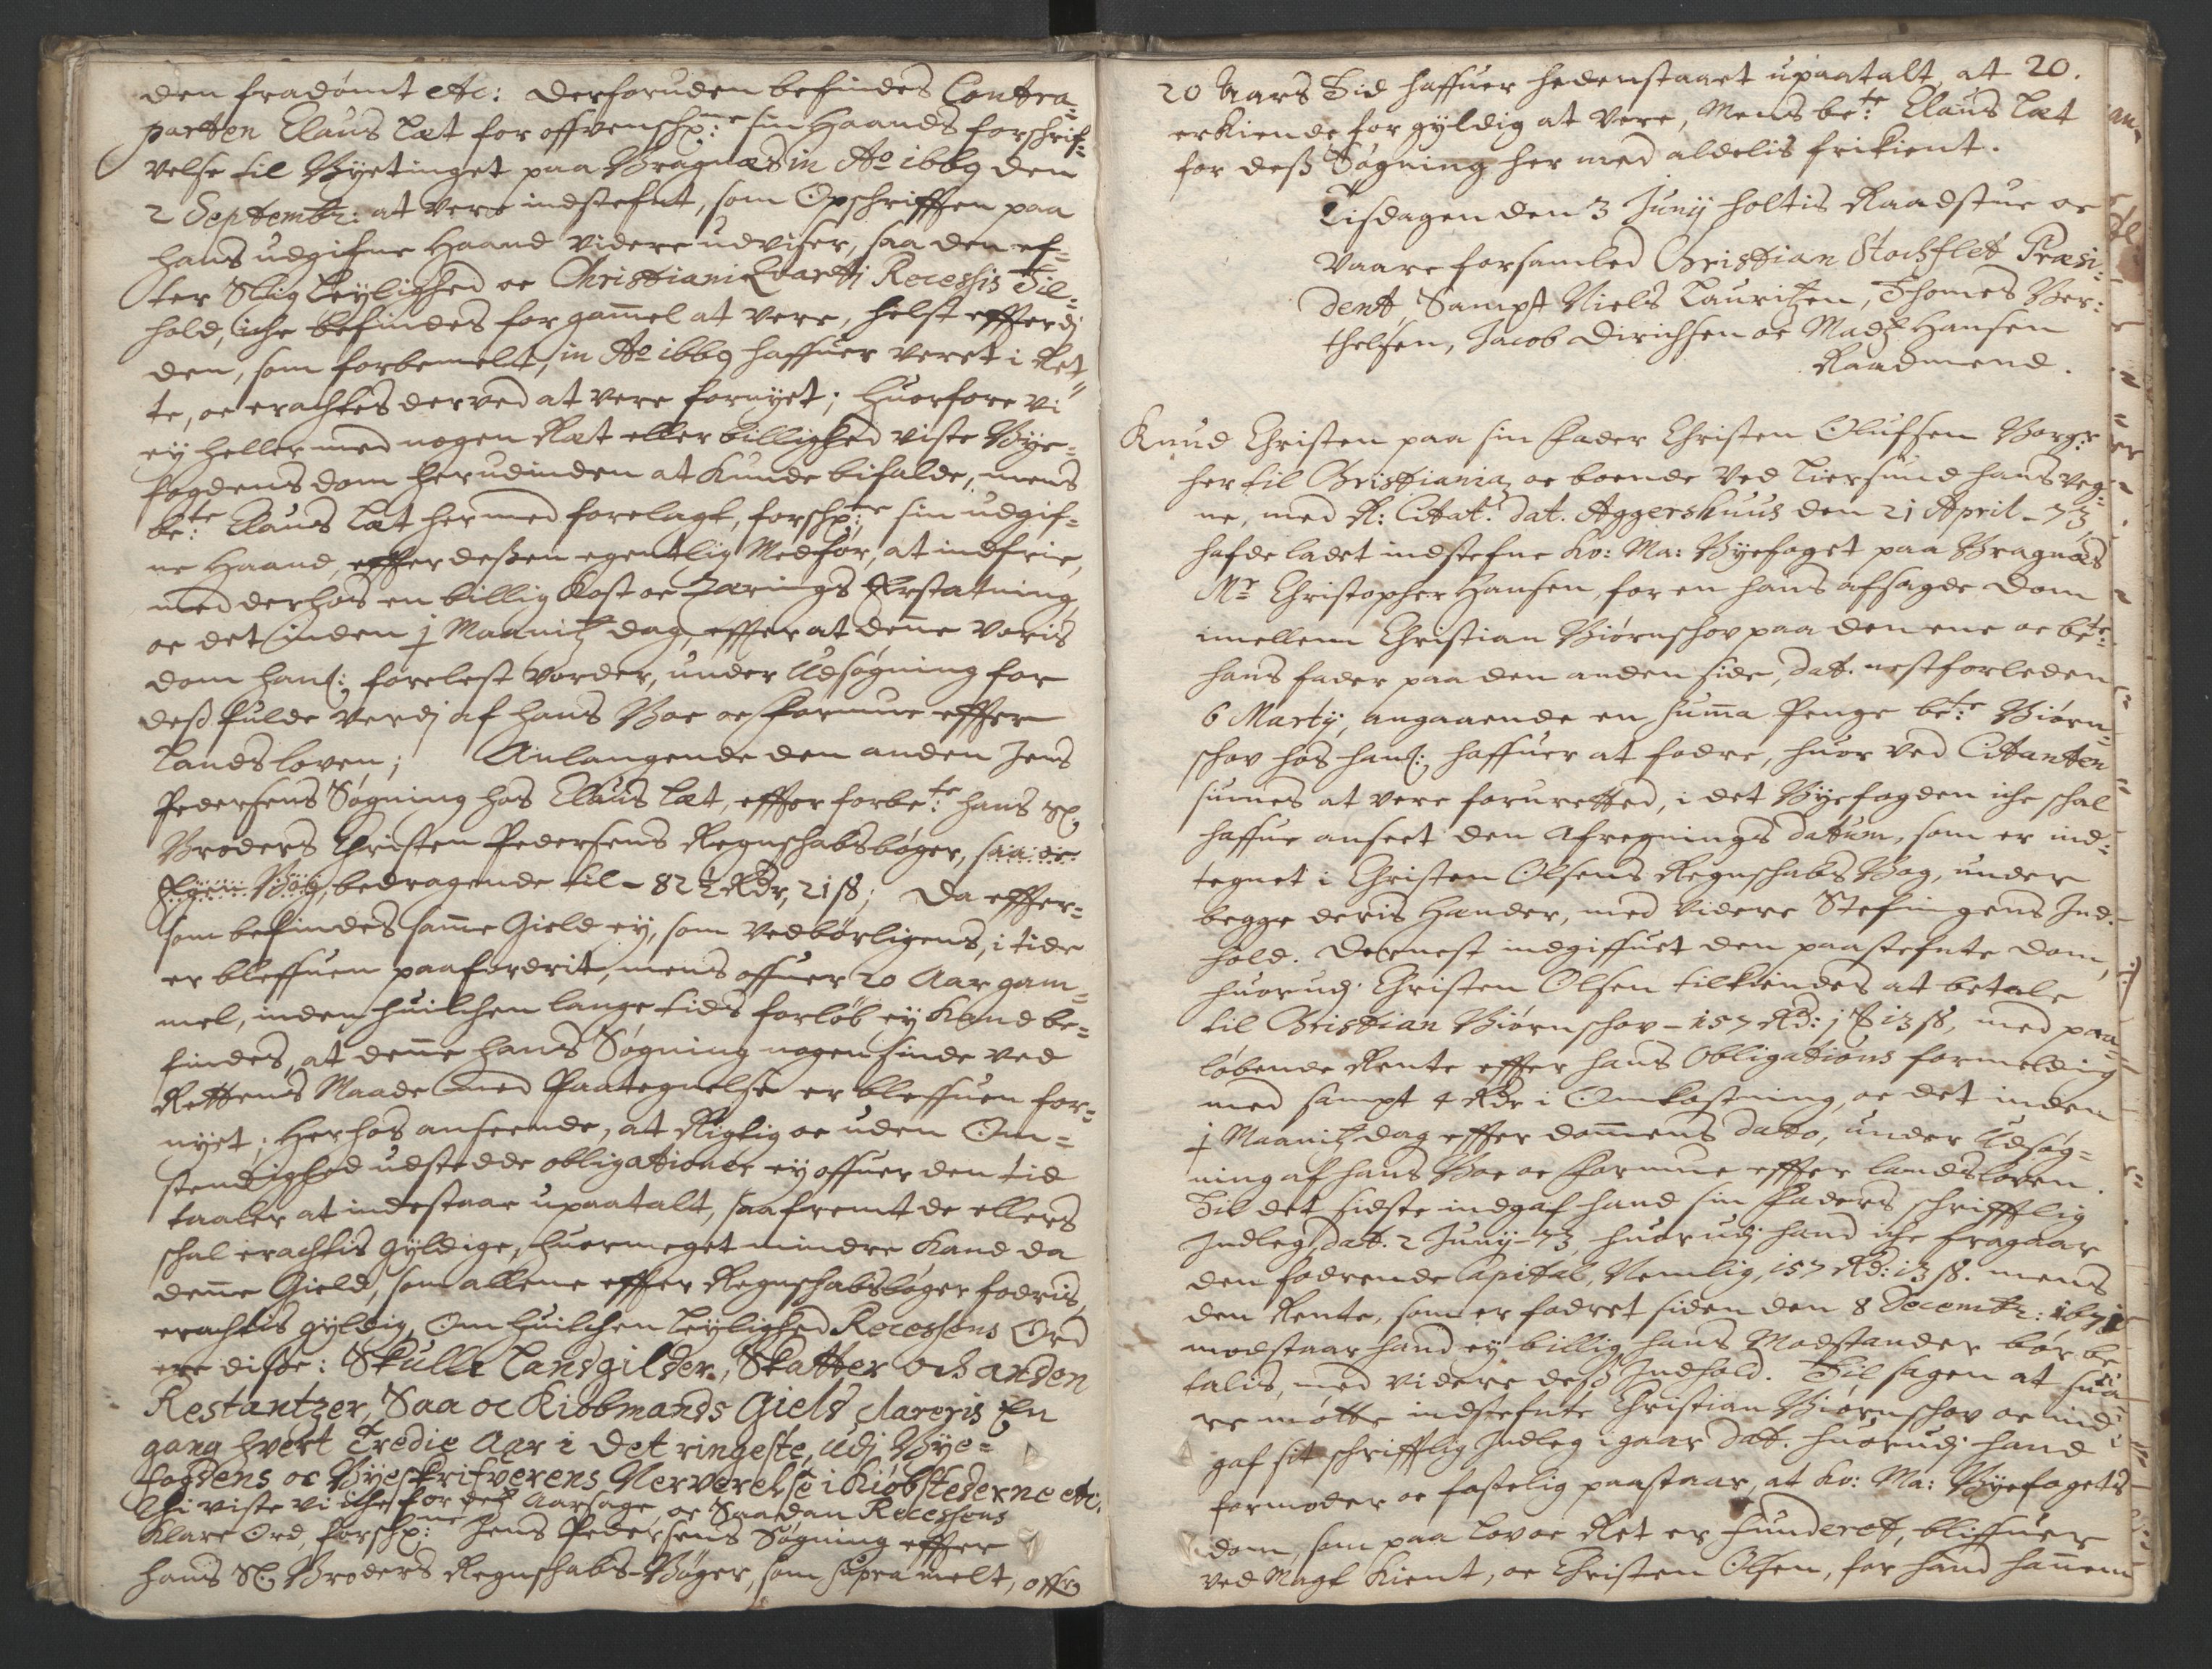 den fradømt etc: Derforuden befindes Contra-
parten Claus Læt for offvenschr:ne sin Haands forschrif-
velse til Byetinget paa Bragnæs in Ao 1669 den
2 Septembr: at vere indstefnt, som Opschrifften paa
hans udgifne Haand videre udviser, saa den ef-
ter Slig Leylighed oc Christiani Qvarti Recessis Til-
hold, iche befindes for gammel at vere, helst efftersom
den, som forbemelt, in Ao 1669 haffuer veret i Ret-
te, oc erachtis derved at vere fornyet; Huorfore vi
ey heller med nogen Ret eller billighed viste Bye-
fogdens dom herudinden at kunde bifalde, mens
be:te Claus Læt hermed forelagt, forschr:ne sin udgif-
ne Haand, effter dessen egentlig Medfør, at indfrie,
med derhos en billig Kost oc Tærings Erstatning,
oc det inden j Maanitz dag, effter at denne voris
dom hannem forelest vorder, under Udsøgning for
dess fulde verdj af hans Boe oc formue effter
Landsloven; Anlangende den anden Jens
Pedersens Søgning hos Claus Læt, effter forbe:te hans Sl
Broders Christen Pedersens Regnschabsbøger, saa de
Egen Bog, bedragende til - 82½ Rdr, 21 ß; Da effter-
som befindes samme Gield ey, som vedbørligens, i tide
er bleffuen paafordrit, mens offuer 20 Aar gam-
mel, inden huilchen lange tids forløb ey kand be-
findes, at denne hans Søgning nogensinde ved
Rettens Maade med Paategnelse er bleffuen for-
nyet; Herhos anseende, at Rigtig oc uden Om-
stendighed udstedde obligationer ey offuer den tid
taaler at indestaae upaatalt, saafremt de ellers
schal erachtis Gyldige, huormeget mindre kand da
denne Gield, som allene effter Regnschabsbøger fodris,
erachtis gyldig, Om huilchen Leylighed Recessens Ord
ere disse: Skulle Landsgilder, Skatter och anden
Restantzer, Saa oc Kiøbmands Gield klareris En
gang hvert Tredie Aar i det ringeste, udj Bye-
fogdens oc Byeskrifverens Nerverelse i Kiøbstederne etc.
Thi viste vi iche for dess Aarsage, oc Saadan Recessens
klare Ord, forschr:ne Jens Pedersens Søgning effter
hans Sl Broders Regnschabs-Bøger, som supra melt, offr
20 Aars Tid haffuer hedenstaaet upaatalt, at
erkiende for gyldig at vere, Mens be:te Claus Læt
for dess Søgning her med aldelis frikient.
Tisdagen den 3 Junij holtis Raadstue oc
vaare forsamled Christian Stochflet Præsi-
dent, Sampt Niels Lauritzen, Thomes Ber-
thelsen, Jacob Dirichsen oc Madz Hansen
Raadmend.
Knud Christen paa sin fader Christen Olufsen Borger
her til Christiania, oc boende ved Liersund hans veg-
ne, med R: Citat. dat. Aggershuus den 21 April - 73
hafde ladet indstefne Ko: Ma: Byefoget paa Bragnæs
Mr Christopher Hansen, for en hans afsagde dom
imellem Christian Biørnschov paa den ene oc be:te
hans fader paa den anden side, dat. nestforleden
6 Martij, angaaende en Summa Penge be:te Biørn-
schov hos hannem haffuer at fodre, huor ved Citanten
siunes at vere foruretted, i det Byefogden iche schal
haffue anseet den Afregnings datum, som er ind-
tegnet i Christen Olsens Regnschabs Bog, under
begge deris Hænder, med videre Stefningens Ind-
hold. Dernest indgiffuet den paastefnte dom,
huorudj Christen Olsen tilkiendes at betale
til Christian Biørnschov - 157 Rd: j 13 ß, med paa-
løbende Rente effter hans Obligations formelding
med sampt 4 Rdr i Omkostning, oc det inden
j Maanitz dag effter dommens dato, under Udsøg-
ning af hans Boe oc formue effter landsloven.
Til det sidste indgaf hand sin faders schrifftlig
Indleg, dat. 2 Junij - 73, huorudj hand iche fragaar
den fodrende Capital, Nemlig, 157 Rd: 13 ß. mens
den Rente, som er fodret siden den 8 Decembr: 1671
modstaar hand ey billig hans Modstander bør be-
talis, med videre dess Indhold. Til sagen at sua-
re møtte indstefnte Christian Biørnschov oc ind-
gaf sit schrifftlig Indleg i gaar dat. huorudj hand
formoder oc fastelig paastaar, at Ko: Ma: Byefogets
dom, som paa lov oc Ret er funderet, bliffuer
ved Magt kient, oc Christen Olsen, for hand hannem